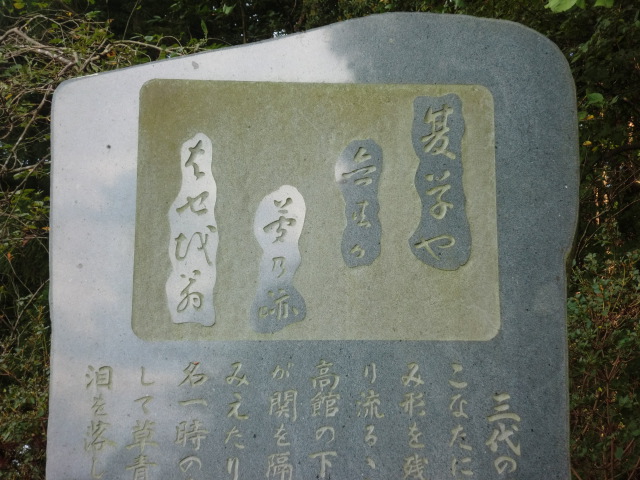 夏草や
兵共か
夢乃跡
はせ越翁
三代の
こなたに
み形を残
り流るゝ
高館の下
が関を隔
みえたり
名一時の
して草青
泪を落し